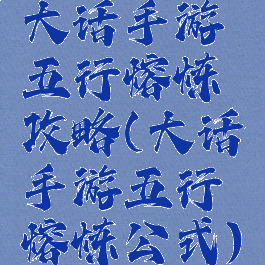 大话手游
五行熔炼
攻略(大话
手游五行
熔炼公式)